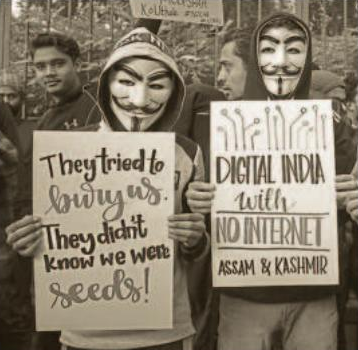 They tried to
bury us.
They didn't
know we were
seeds!
DIGITAL INDIA
with
NO INTERNET
ASSAM & KASHMIR